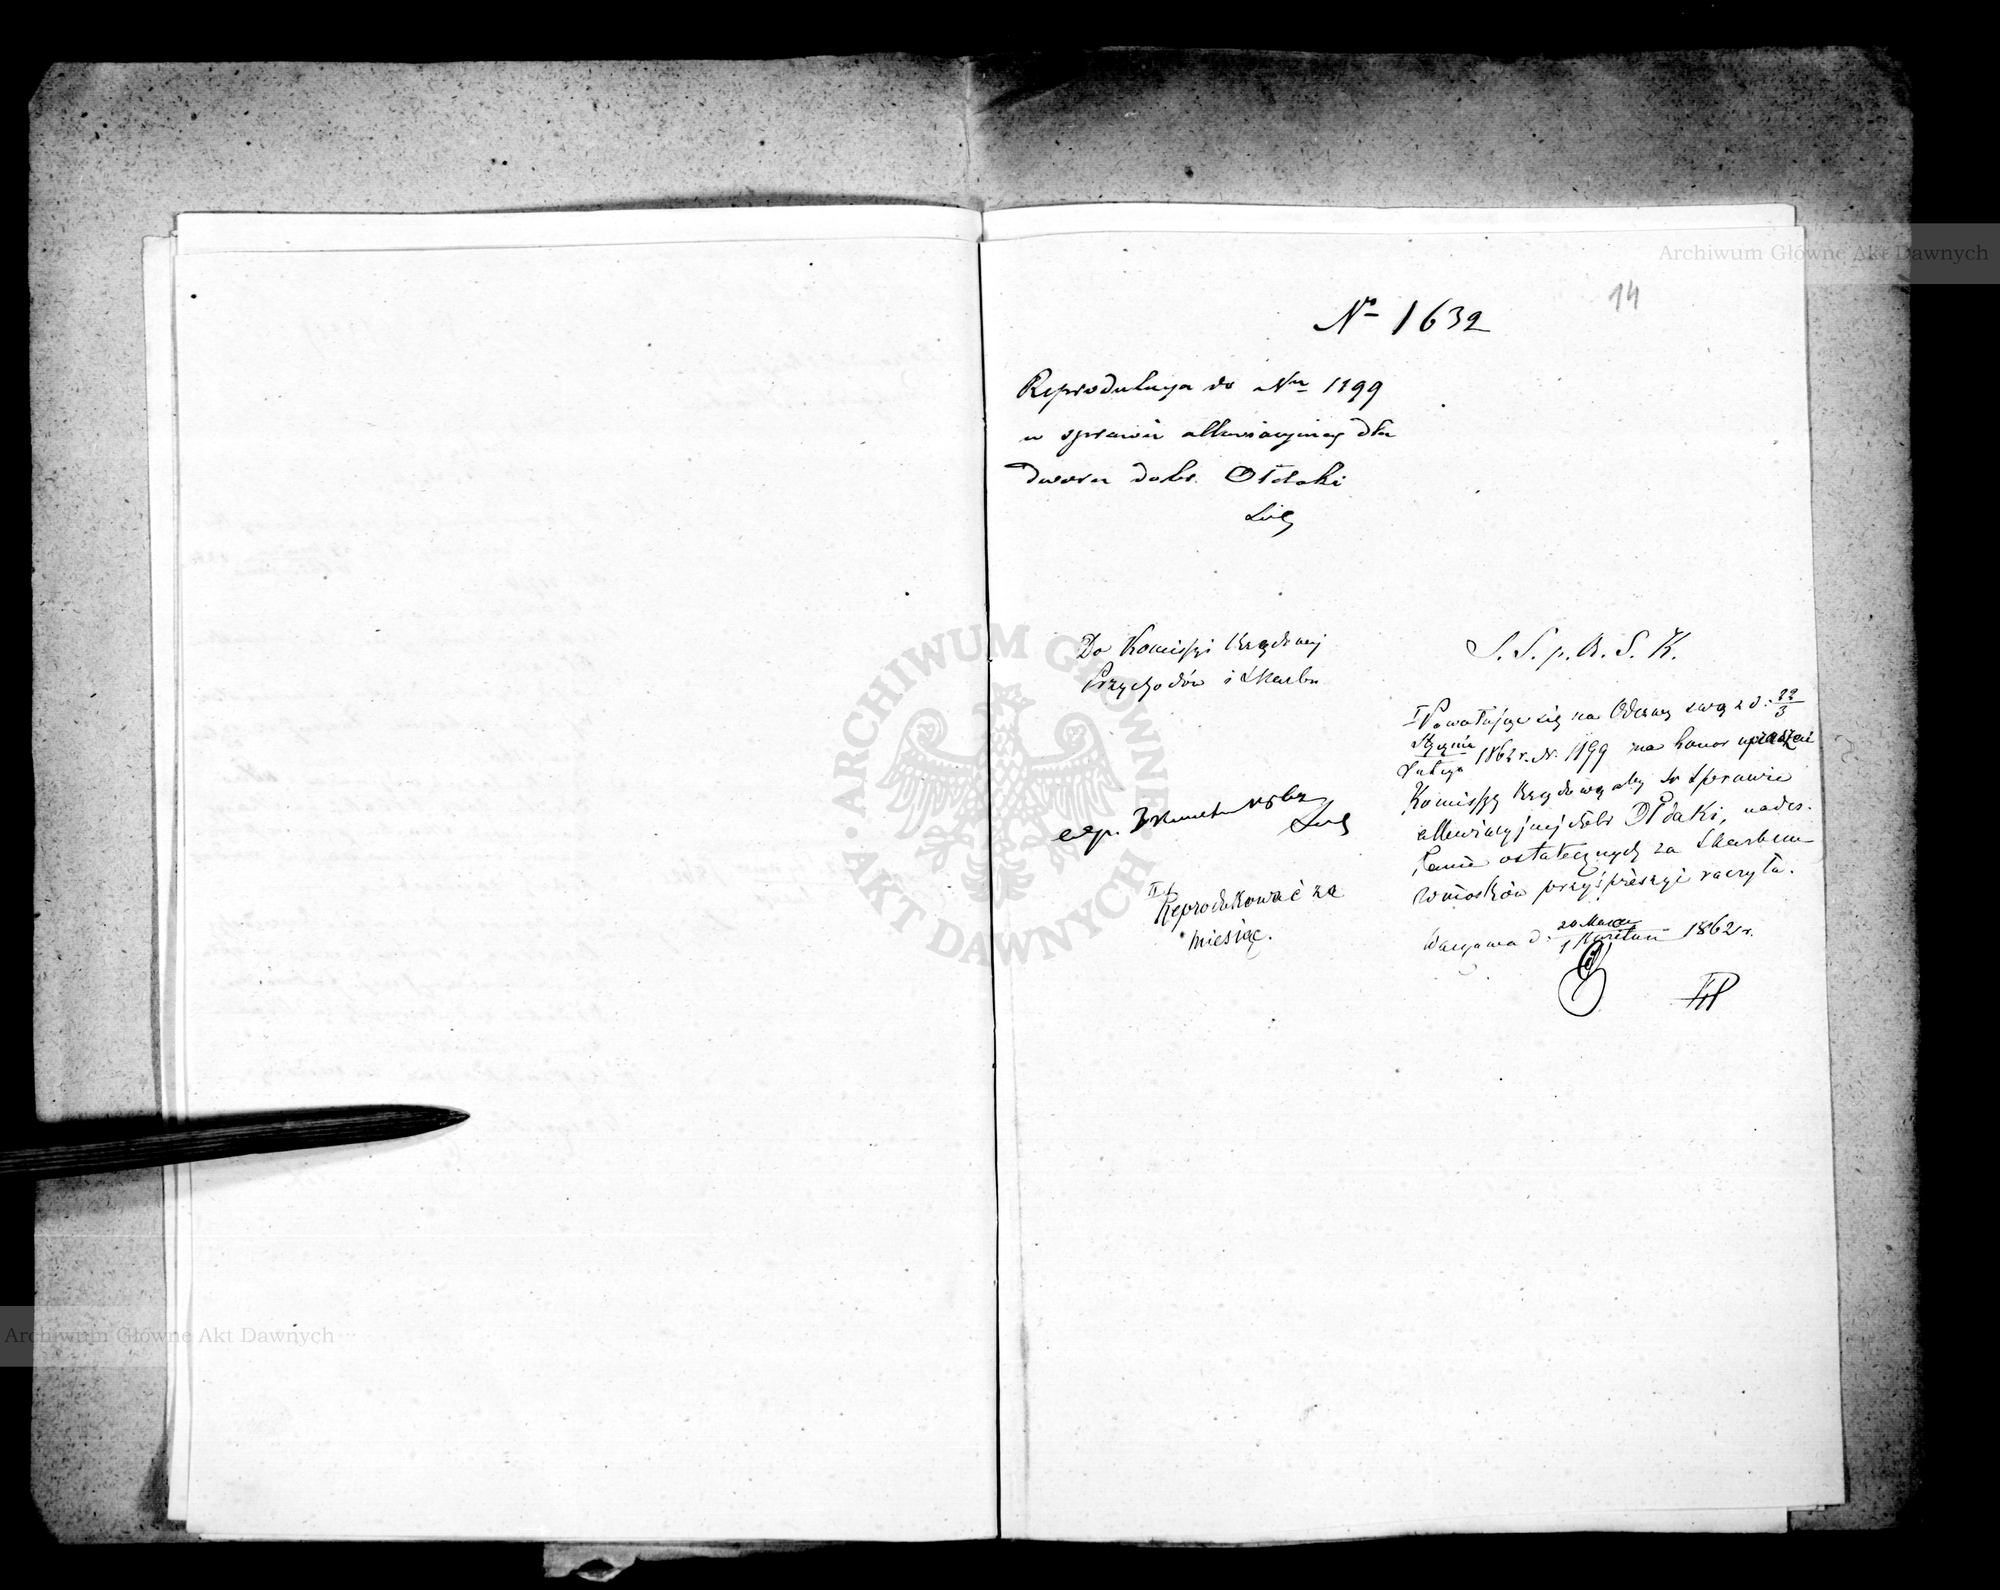 14
№ 1632
Reprodukcya do Nru 1199
w sprawie alluwiacyjnej dla
dworu dobr. Ołdaki
Do Komissyi Rządowej
Przychodów i Skarbu
S. S. p. R. S. K.
I Powołując się na Odezwę swą z d. 22/3
Stycznia/Lutego 1862 r. Nr. 1199 ma honor upraszać
Komissyę Rządową aby w sprawie
alluwiacyjnej dóbr Ołdaki, nades-
łanie ostatecznych za Skarbem
wniosków przyśpieszyć raczyła.
Warszawa d. 20 Marca/1 Kwietnia 1862 r.
exp. 3 Kwietnia 1862
II Reprodukować za
miesiąc.
Archiwum Główne Akt Dawnych
Archiwum Główne Akt Dawnych
ARCHIWUM GŁÓWNE AKT DAWNYCH